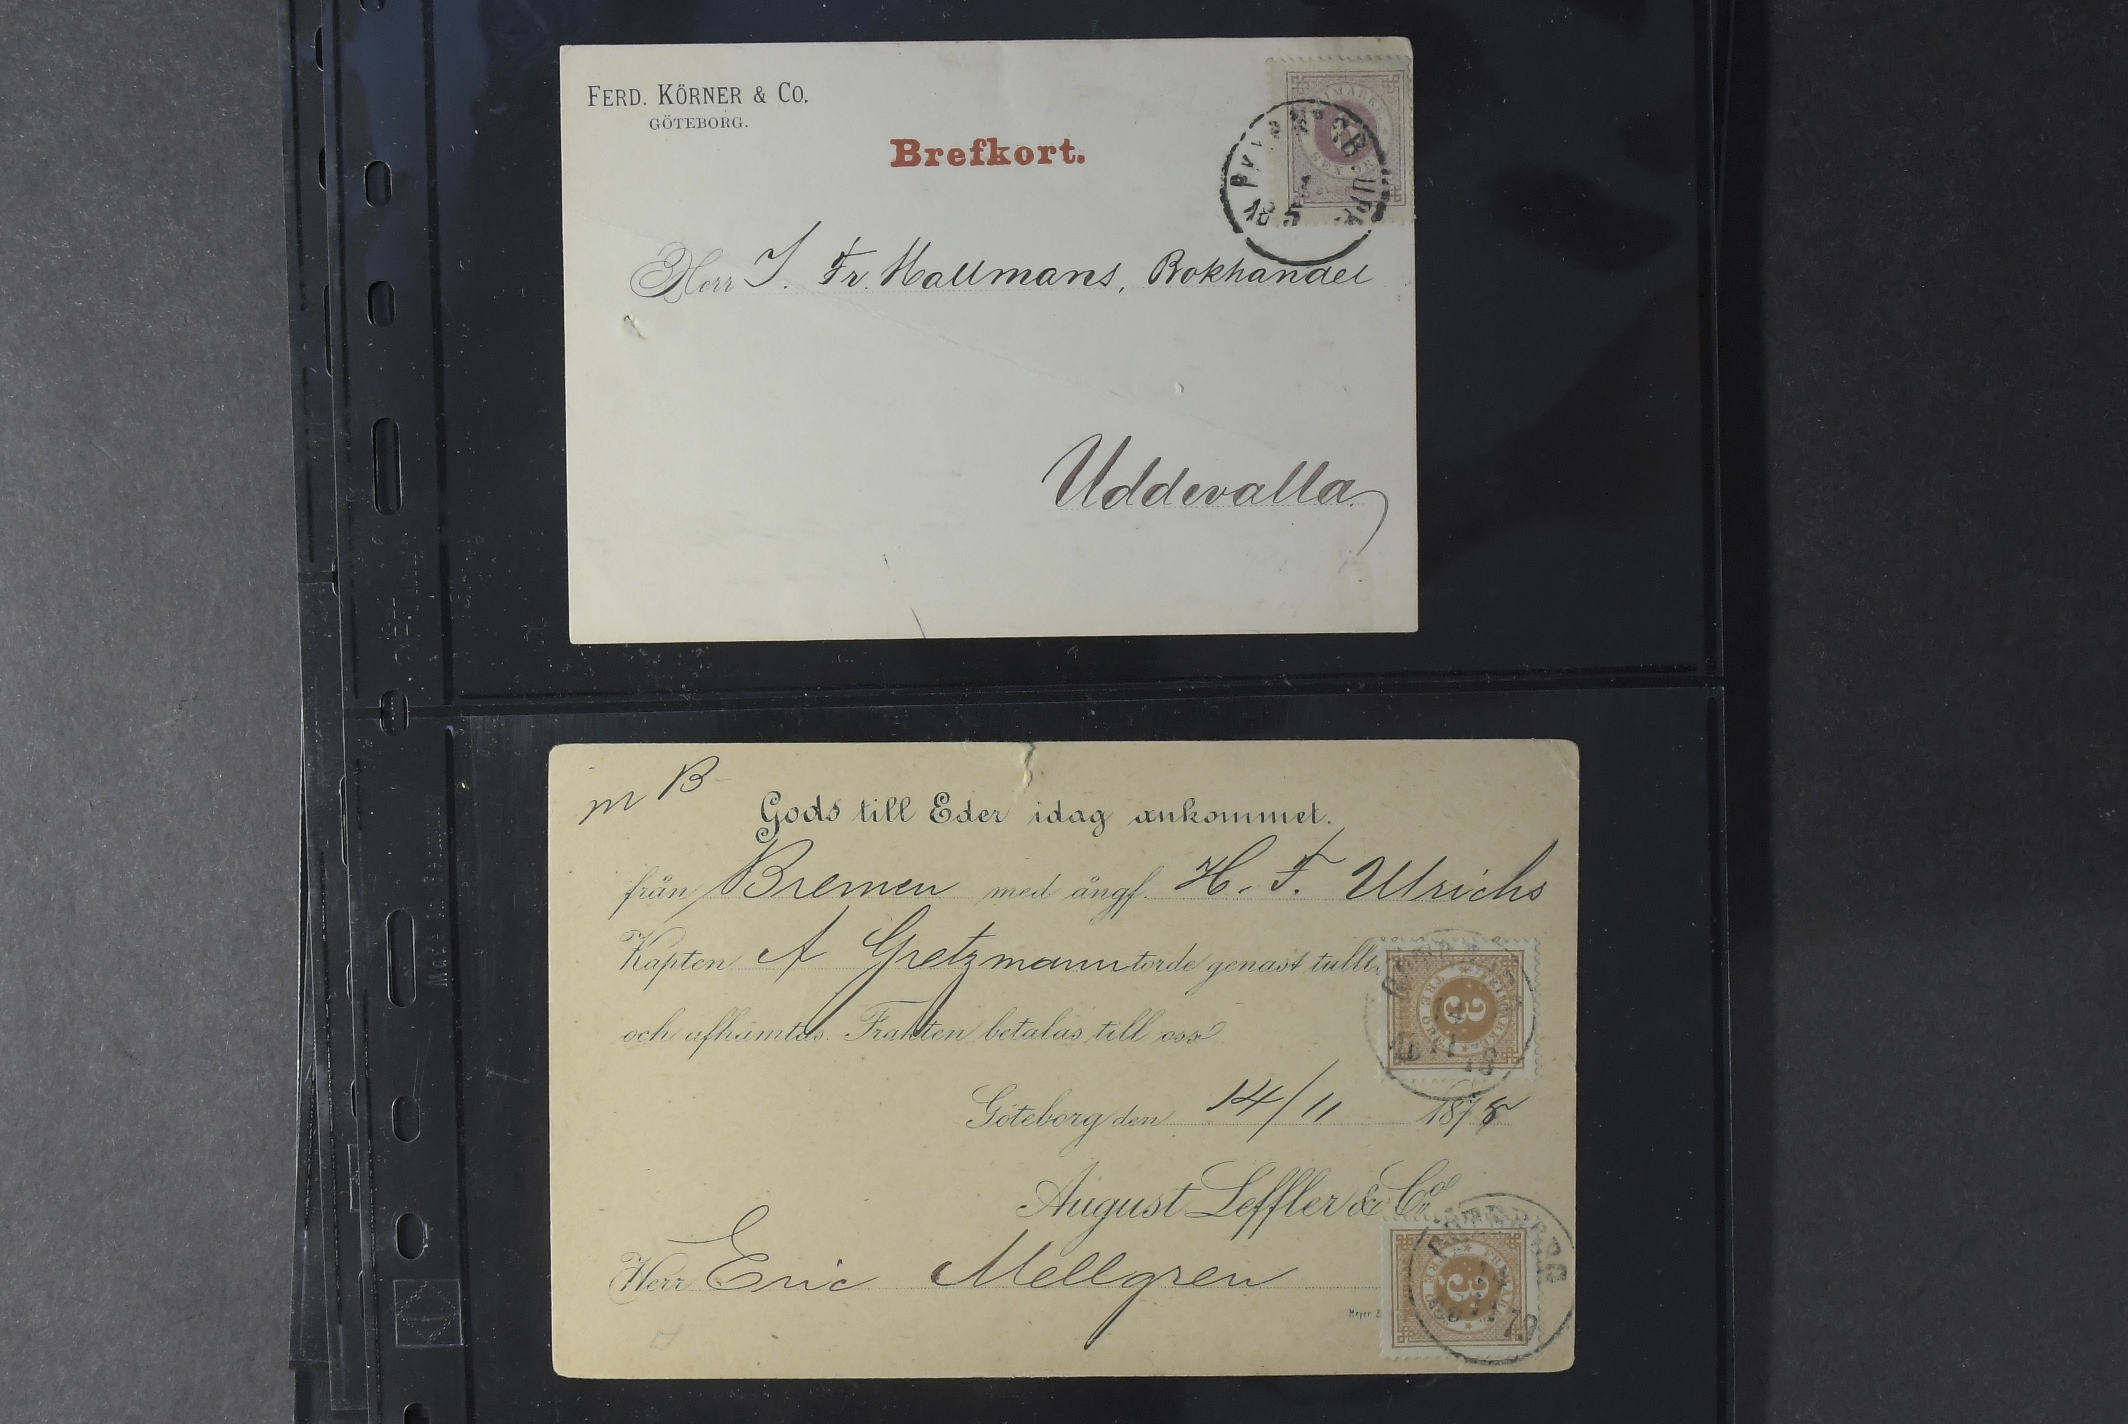 FERD. KÖRNER & CO.
GÖTEBORG.
Brefkort.
Herr J. Fr. Hallmans, Bokhandel
Uddevalla
m B
Gods till Eder idag ankommet.
från Bremen med ångf. H. F. Ulrichs
Kapten A Gretzmann torde genast tull
och afhämtas. Frakten betalas till oss
Göteborg den 14/11 1878
August Leffler & Co
Herr Eric Mellgren
Meyer
FRIMÄRKE
TRE ÖRE
3
FRIMÄRKE
TRE ÖRE
3
GÖTEBORG